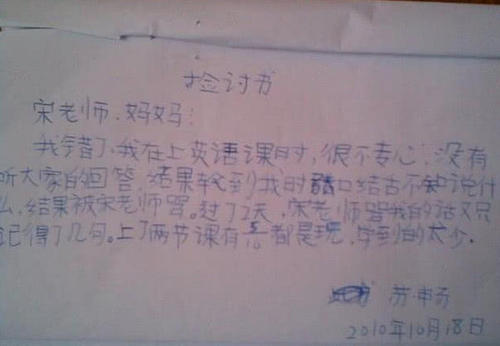 检讨书
宋老师、妈妈:
我今错了,我在上英语课时,很不专心,没有
听大家的回答,结果轮到我时口结古不知说什
么,结果被宋老师骂。过了2天,宋老师骂我的话又只
记得了几句。上了两节课有 都是玩,学到的太少。
苏
2010年10月18日